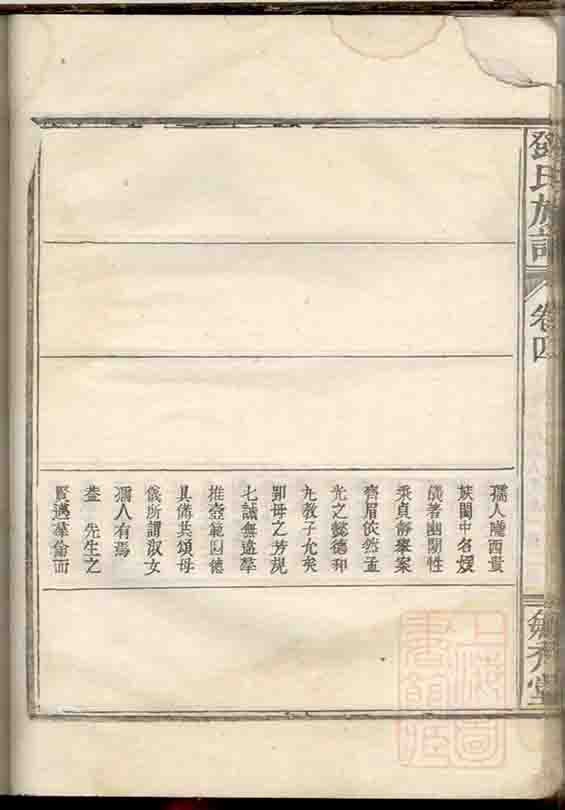 鄧氏族譜
卷四
孺人隴西貴
族閫中名媛
儀著幽閒性
秉貞靜舉案
齊眉依然孟
光之懿德和
丸教子允矣
母之芳規
七誡無違
推壺範四德
具備其頌母
儀所謂淑女
孺人有焉
蓋 先生之
賢邁 倫而
堂
上海圖書館藏